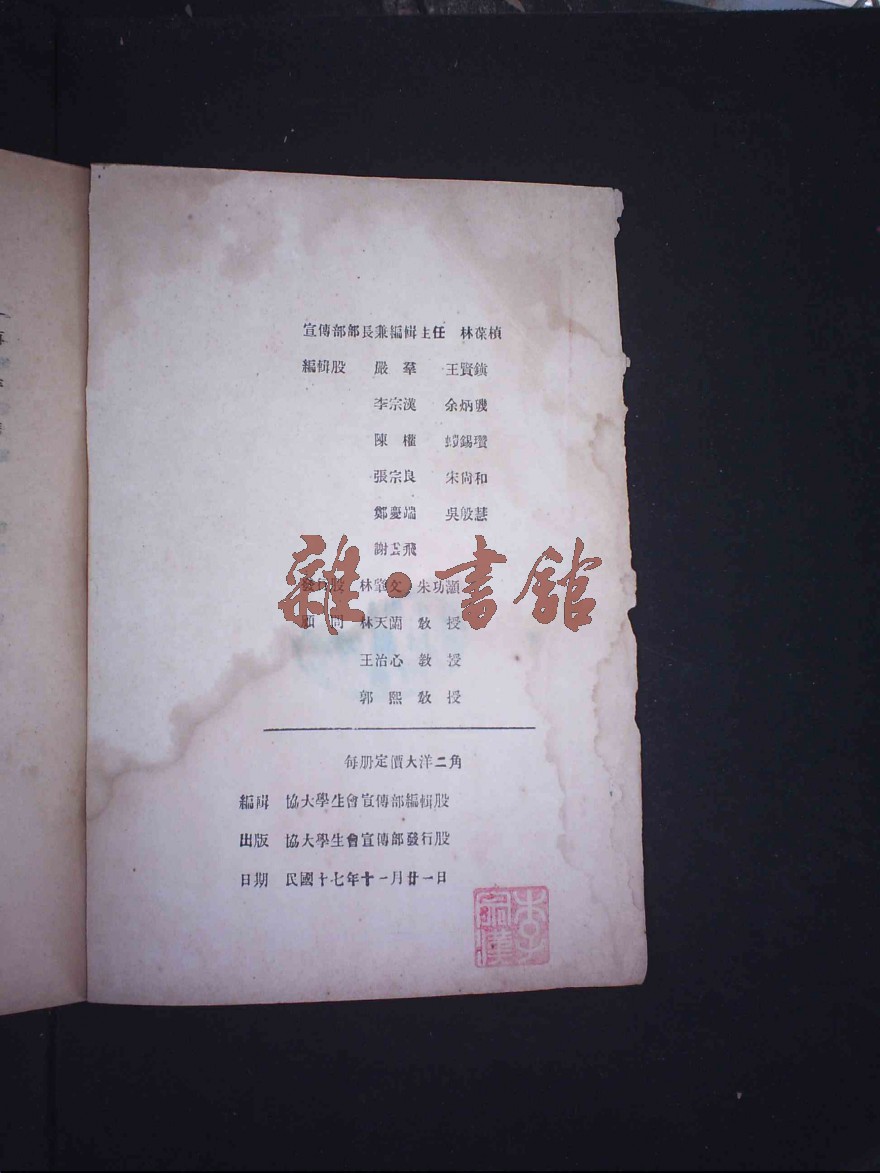 宣傳部部長兼編輯主任 林葆楨
編輯股 嚴羣 王賢鎮
李宗漢 余炳
陳權 錫瓚
張宗良 宋尙和
鄭慶端 吳殷慧
謝雲飛
發行股 林肇文 朱功灝
顧問 林天蘭 敎授
王治心 敎授
郭熙 敎授
每册定價大洋二角
編輯 協大學生會宣傳部編輯股
出版 協大學生會宣傳部發行股
日期 民國十七年十一月廿一日
李宗漢
雜·書館